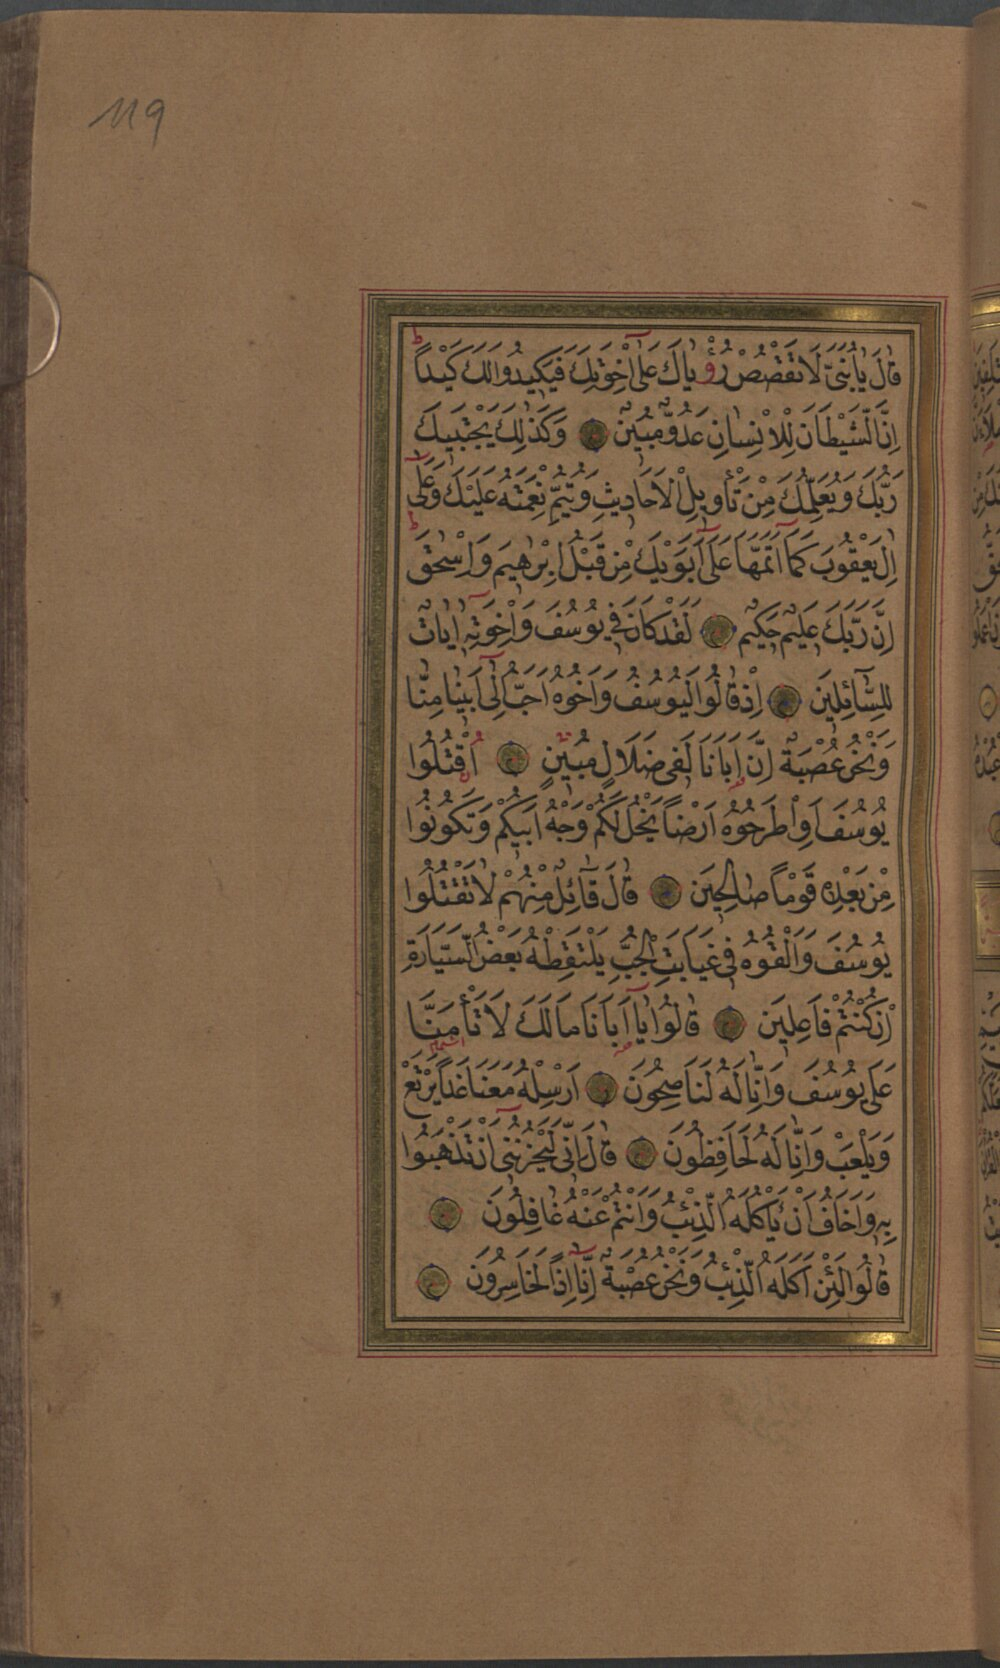 119
قَالَ يَا بُنَيَّ لَا تَقْصُصْ رُؤْيَاكَ عَلَى اِخْوَتِكَ فَيَكِيدُوا لَكَ كَيْدًا
اِنَّ الشَّيْطَانَ لِلْاِنْسَانِ عَدُوٌّ مُبِينٌ وَكَذٰلِكَ يَجْتَبِيكَ
رَبُّكَ وَيُعَلِّمُكَ مِنْ تَأْوِيلِ الْاَحَادِيثِ وَيُتِمُّ نِعْمَتَهُ عَلَيْكَ وَعَلٰى
اٰلِ يَعْقُوبَ كَمَا اَتَمَّهَا عَلٰى اَبَوَيْكَ مِنْ قَبْلُ اِبْرٰهِيمَ وَاِسْحٰقَ
اِنَّ رَبَّكَ عَلِيمٌ حَكِيمٌ لَقَدْ كَانَ فِي يُوسُفَ وَاِخْوَتِهِ اٰيَاتٌ
لِلسَّائِلِينَ اِذْ قَالُوا لَيُوسُفُ وَاَخُوهُ اَحَبُّ اِلٰى اَبِينَا مِنَّا
وَنَحْنُ عُصْبَةٌ اِنَّ اَبَانَا لَفِي ضَلَالٍ مُبِينٍ اُقْتُلُوا
يُوسُفَ اَوِ اطْرَحُوهُ اَرْضًا يَخْلُ لَكُمْ وَجْهُ اَبِيكُمْ وَتَكُونُوا
مِنْ بَعْدِهِ قَوْمًا صَالِحِينَ قَالَ قَائِلٌ مِنْهُمْ لَا تَقْتُلُوا
يُوسُفَ وَاَلْقُوهُ فِي غَيَابَتِ الْجُبِّ يَلْتَقِطْهُ بَعْضُ السَّيَّارَةِ
اِنْ كُنْتُمْ فَاعِلِينَ قَالُوا يَا اَبَانَا مَا لَكَ لَا تَأْمَنَّا
عَلٰى يُوسُفَ وَاِنَّا لَهُ لَنَاصِحُونَ اَرْسِلْهُ مَعَنَا غَدًا يَرْتَعْ
وَيَلْعَبْ وَاِنَّا لَهُ لَحَافِظُونَ قَالَ اِنِّي لَيَحْزُنُنِي اَنْ تَذْهَبُوا
بِهِ وَاَخَافُ اَنْ يَأْكُلَهُ الذِّئْبُ وَاَنْتُمْ عَنْهُ غَافِلُونَ
قَالُوا لَئِنْ اَكَلَهُ الذِّئْبُ وَنَحْنُ عُصْبَةٌ اِنَّا اِذًا لَخَاسِرُونَ